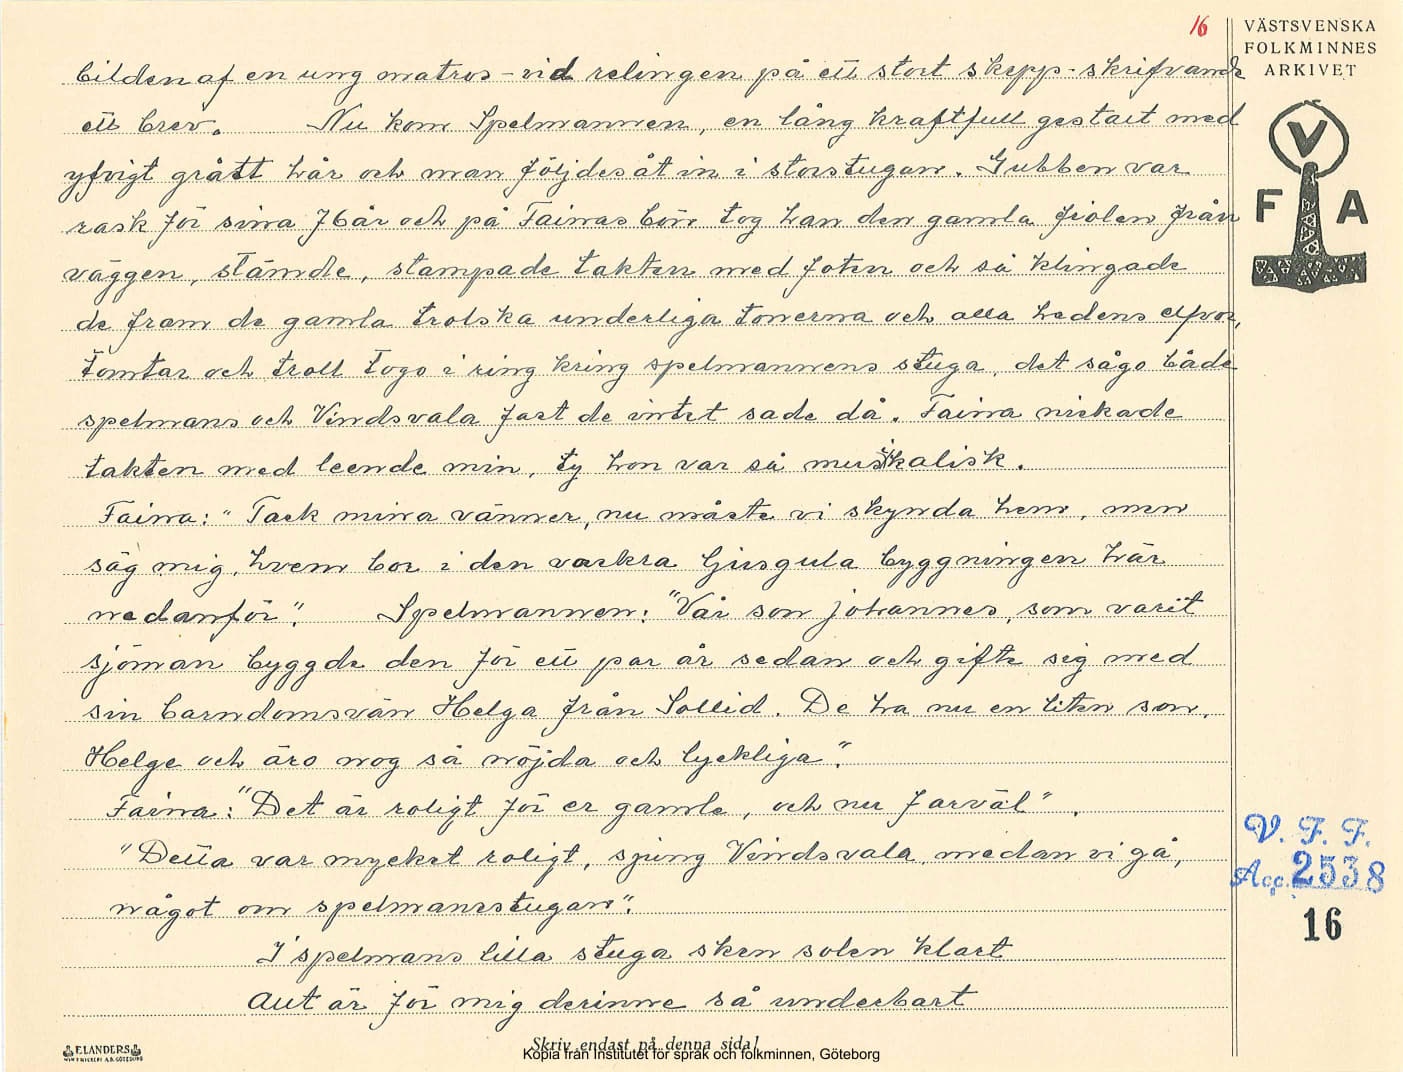 16
VÄSTSVENSKA
FOLKMINNES
ARKIVET
bilden af en ung matros - vid relingen på ett stort skepp - skrifvande
ett brev. Nu kom Spelmannen, en lång kraftfull gestalt med
yfvigt grått hår och man följdes åt in i storstugan. Gubben var
rask för sina 76 år och på Fainas bön tog han den gamla fiolen från
väggen, stämde, stampade takten med foten och så klingade
de fram de gamla trolska underliga tonerna och alla hedens elfvor,
tomtar och troll togo i ring kring spelmannens stuga, det sågo både
spelmans och Vindsvala fast de intet sade då. Faina nickade
takten med leende min, ty hon var så musikalisk.
Faina: "Tack mina vänner, nu måste vi skynda hem, men
säg mig, hvem bor i den vackra ljusgula byggningen här
nedanför". Spelmannen: "Vår son Johannes, som varit
sjöman byggde den för ett par år sedan och gifte sig med
sin barndomsvän Helga från Sollid. De ha nu en liten son,
Helge och äro nog så nöjda och lyckliga".
Faina: "Det är roligt för er gamle, och nu farväl".
"Detta var mycket roligt, sjung Vindsvala medan vi gå,
något om spelmansstugan".
I spelmans lilla stuga sken solen klart
allt är för mig derinne så underbart
V
F A
V. F. F.
Acc. 2538
16
ELANDERS
Skriv endast på denna sida!
Kopia från Institutet för språk och folkminnen, Göteborg